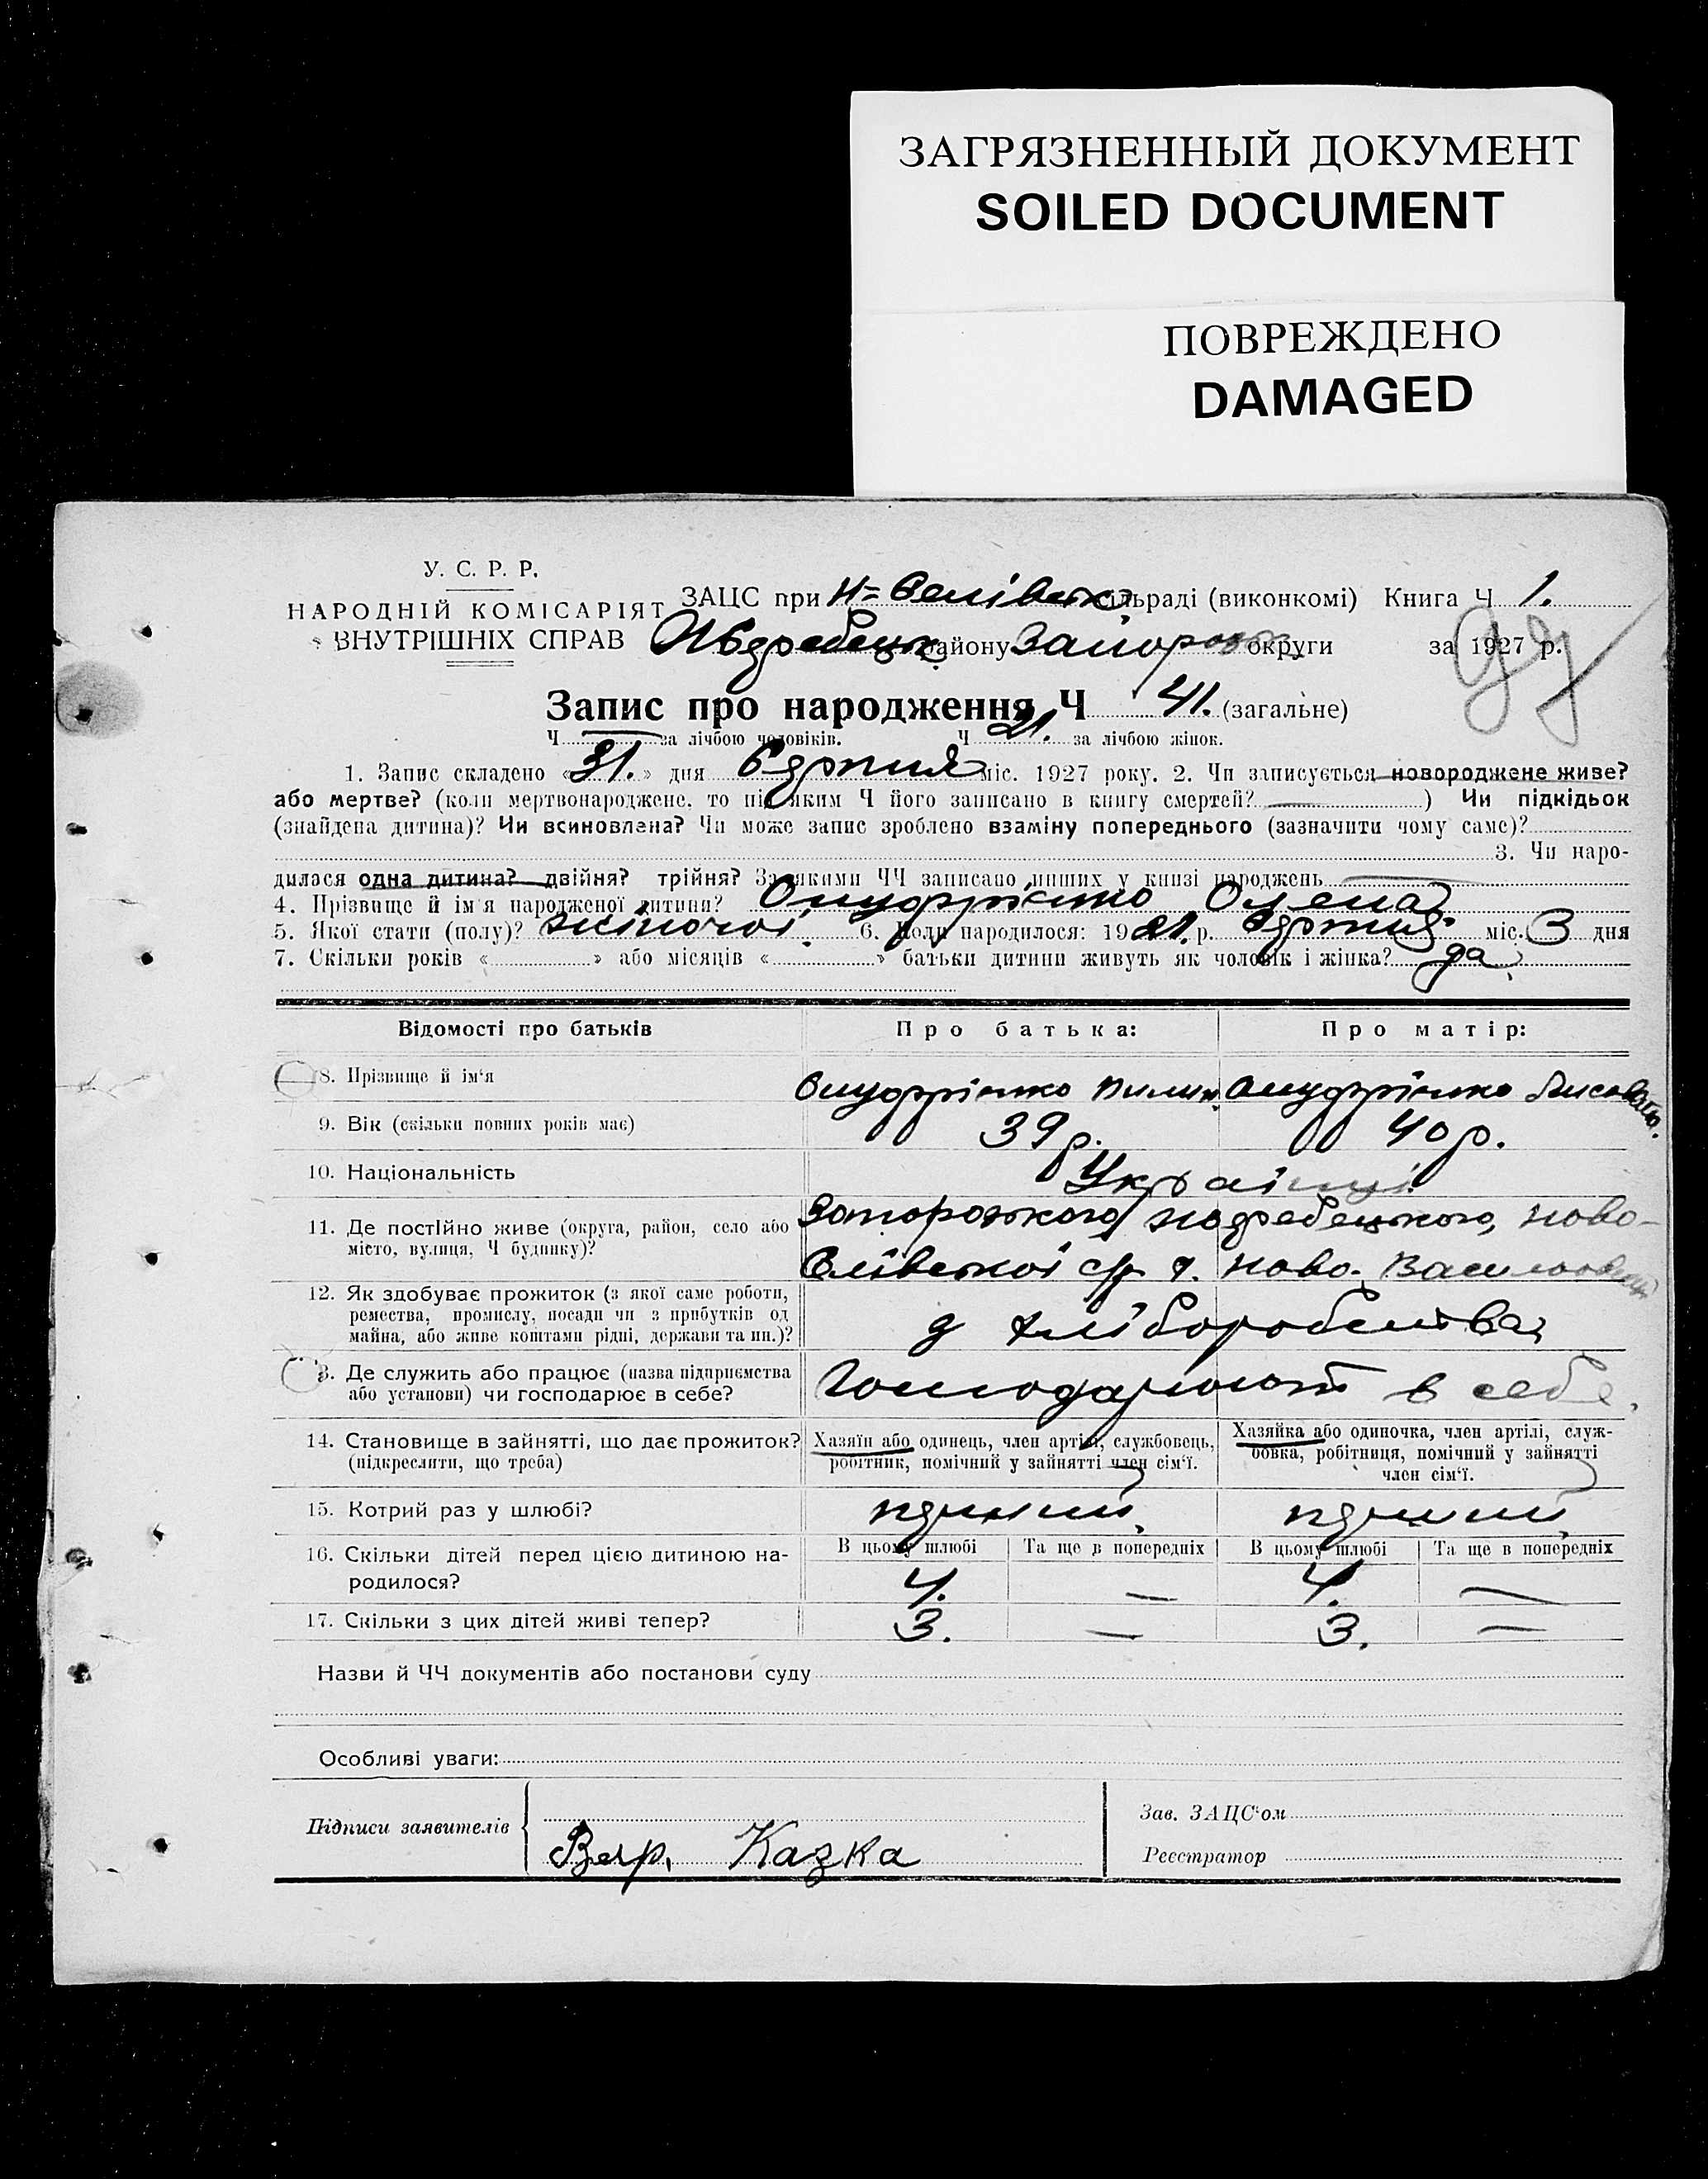 ЗАГРЯЗНЕННЫЙ ДОКУМЕНТ
SOILED DOCUMENT
ПОВРЕЖДЕНО
DAMAGED
У. С. Р. Р.
НАРОДНІЙ КОМІСАРІЯТ
ВНУТРІШНІХ СПРАВ
ЗАЦС при сільраді (виконкомі) Книга Ч 1.
району Запорозь округи за 1927 р.
Запис про народження Ч 41. (загальне)
Ч — за лічбою чоловіків. Ч 21. за лічбою жінок.
1. Запис складено « 31. » дня Серпня міс. 1927 року. 2. Чи записується новороджене живе?
або мертве? (коли мертвонароджене, то під яким Ч його записано в книгу смертей? — ) Чи підкідьок
(знайдена дитина)? Чи всиновлена? Чи може запис зроблено взаміну попереднього (зазначити чому саме)?
3. Чи наро-
дилася одна дитина? двійня? трійня? За якими ЧЧ записано инших у книзі народжень —
4. Прізвище й ім'я народженої дитини? Онуфрієнко Олена
5. Якої статі (полу)? жіночої. 6. Коли народилося: 19 р. Серпня міс. 3 дня
7. Скільки років « » або місяців « » батьки дитини живуть як чоловік і жінка? да
Відомості про батьків
Про батька:
Про матір:
8. Прізвище й ім'я
Онуфрієнко Пилип.
Онуфрієнко
9. Вік (скільки повних років має)
39 р.
40 р.
10. Національність
Українці
11. Де постійно живе (округа, район, село або
місто, вулиця, Ч будинку)?
Запорозького ново-
с/р ново. Василь
12. Як здобуває прожиток (з якої саме роботи,
ремества, промислу, посади чи з прибутків од
майна, або живе коштами рідні, держави та ин.)?
з хліборобства
13. Де служить або працює (назва підприємства
або установи) чи господарює в себе?
Господарюють в себе.
14. Становище в зайнятті, що дає прожиток?
(підкреслити, що треба)
Хазяїн або одинець, член артілі, службовець,
робітник, помічний у зайнятті член сім'ї.
Хазяйка або одиночка, член артілі, служ-
бовка, робітниця, помічний у зайнятті
член сім'ї.
15. Котрий раз у шлюбі?
16. Скільки дітей перед цією дитиною на-
родилося?
В цьому шлюбі
Та ще в попередніх
В цьому шлюбі
Та ще в попередніх
4. — 4. —
17. Скільки з цих дітей живі тепер?
3. — 3. —
Назви й ЧЧ документів або постанови суду
Особливі уваги:
Підписи заявителів
Казка
Зав. ЗАЦС'ом
Реєстратор